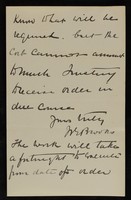 know what will be
required. but the
Cost cannot amount
to much. Trusting
to receive order in
due Course
Yours truly
W S Brooks
The work will take
a fortnight to execute
from date of order